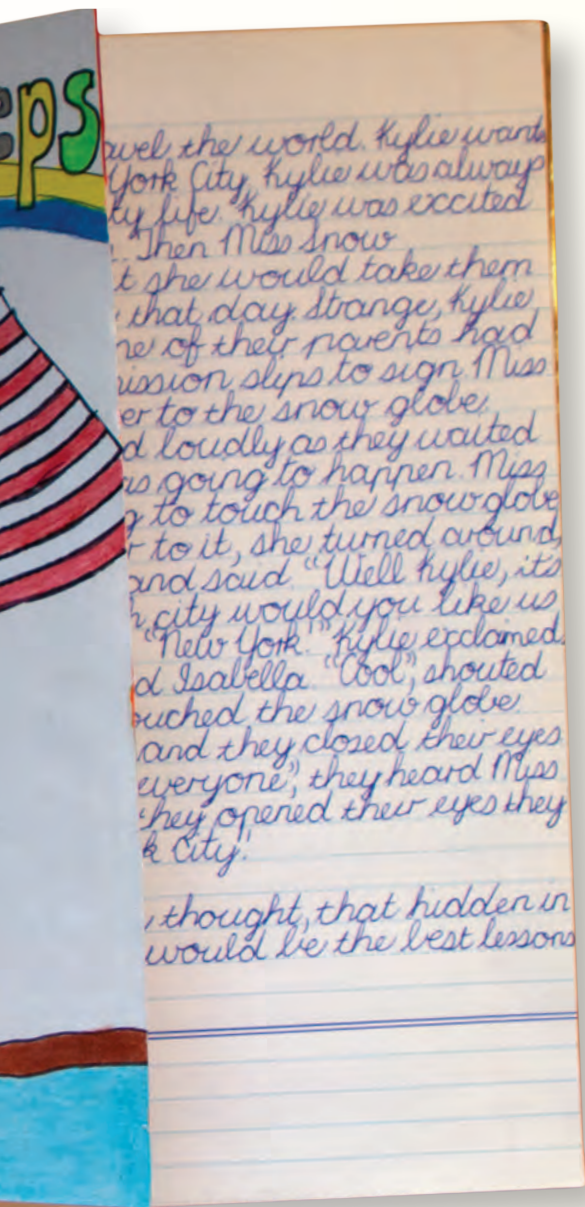 eps
avel the world. Kylie wants
York City, Kylie was always
ty life. Kylie was excited
. Then Miss Snow
t she would take them
that day. Strange, Kylie
ne of their parents had
ission slips to sign. Miss
er to the snow globe.
d loudly as they waited
as going to happen. Miss
g to touch the snow globe
r to it, she turned around,
and said "Well Kylie, it's
h city would you like us
"New York!" Kylie exclaimed.
d Isabella. "Cool", shouted
ouched the snow globe.
and they closed their eyes
everyone", they heard Miss
they opened their eyes they
k City!
thought, that hidden in
would be the best lessons